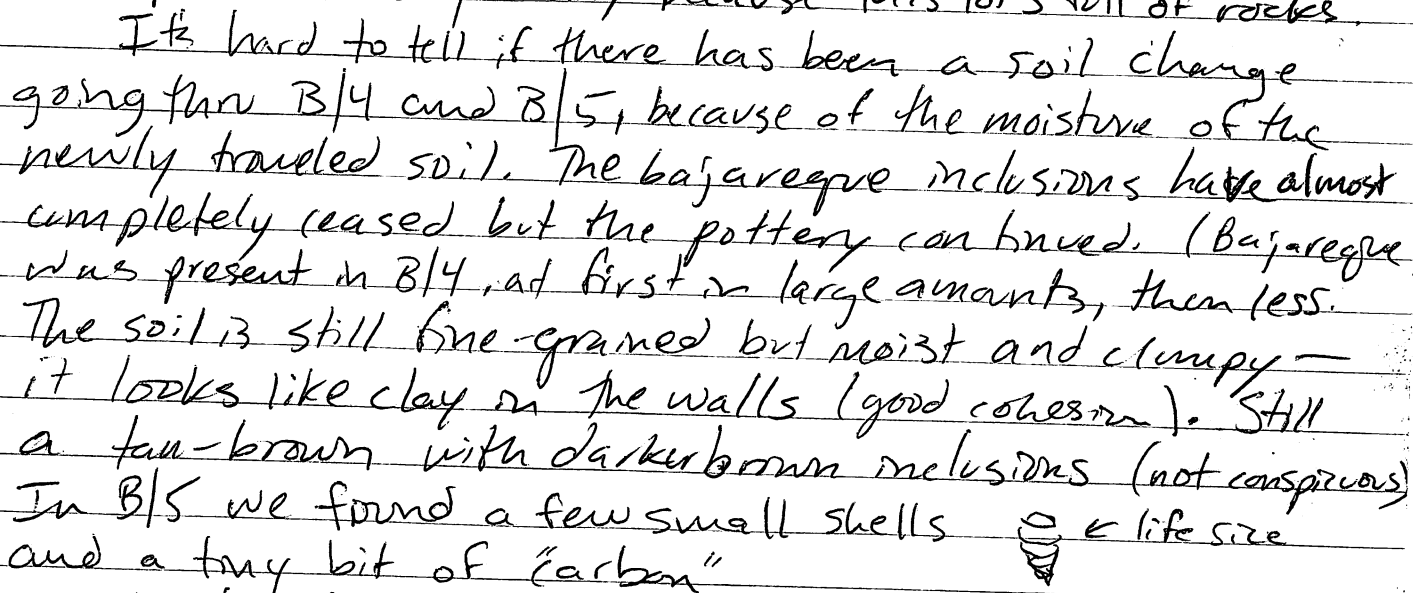 because this lot's full of rocks.
It's hard to tell if there has been a soil change
going thru B/4 and B/5, because of the moisture of the
newly traveled soil. The bajareque inclusions have almost
completely ceased but the pottery continued. (Bajareque
was present in B/4, at first in large amounts, then less.
The soil is still fine-grained but moist and clumpy —
it looks like clay in the walls (good cohesion). Still
a tan-brown with darker brown inclusions (not conspicuous)
In B/5 we found a few small shells ← life size
and a tiny bit of "carbon"